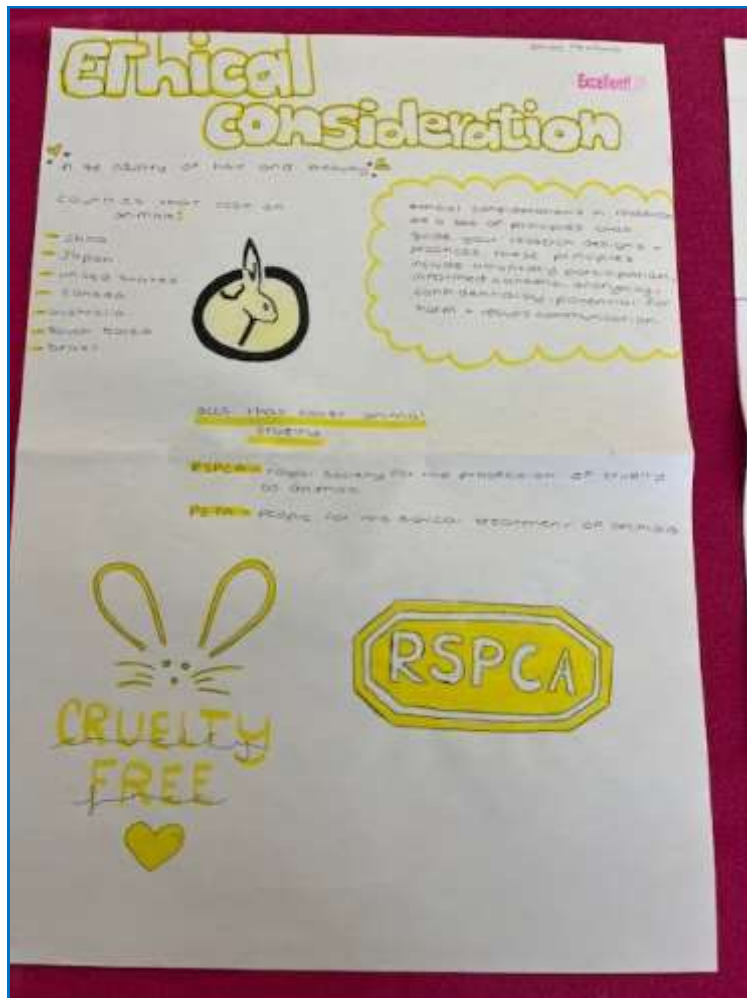 Excellent!
Ethical
consideration
in the industry of hair and beauty
countries that test on
animals
- China
- Japan
- united states
- Canada
- australia
- South Korea
- brazil
ethical considerations in research
are a set of principles that
guide your research designs +
practices. these principles
include voluntary participation,
informed consent, anonymity,
confidentiality, potential for
harm + results communication.
acts that cover animal
cruelty
RSPCA = royal society for the of cruelty
to animals
PETA = People for the ethical treatment of animals
CRUELTY
cruelty
FREE
free
RSPCA